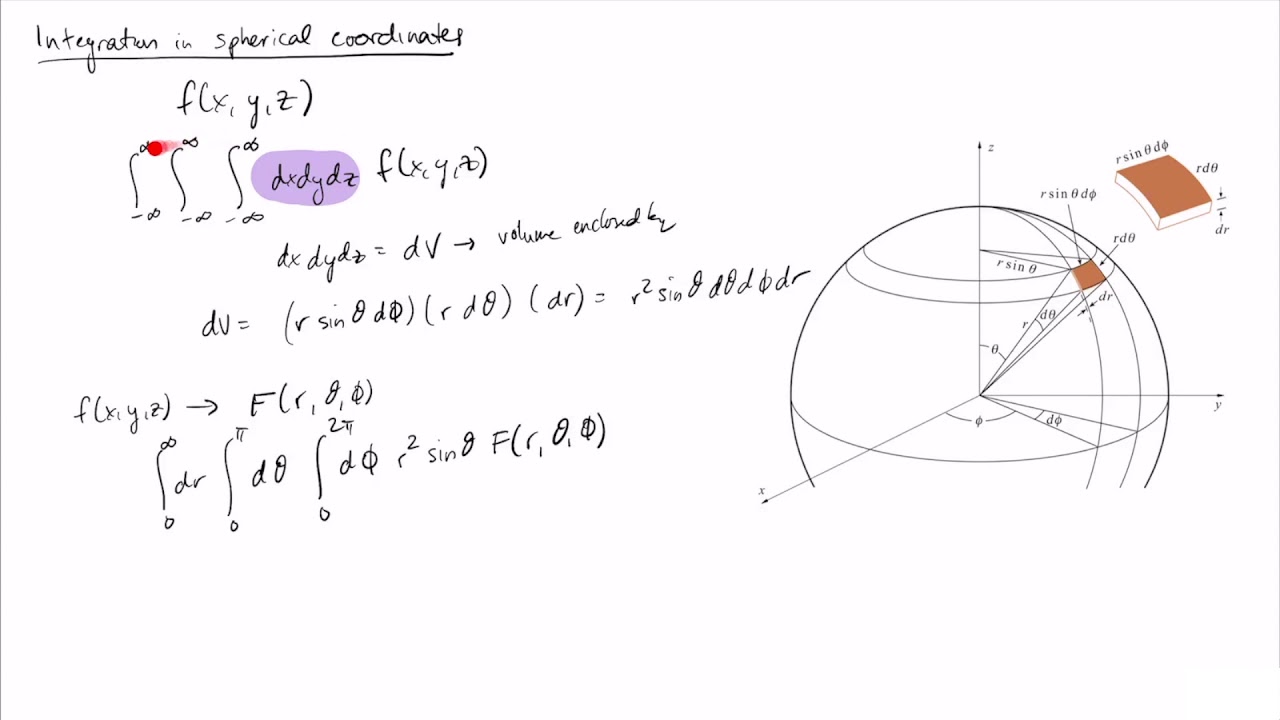 Integration in spherical coordinates
f(x, y, z)
∫_{-∞}^{∞} ∫_{-∞}^{∞} ∫_{-∞}^{∞} dxdydz f(x, y, z)
dxdydz = dV → volume enclosed by
dV = (r sinθ dΦ)(r dθ)(dr) = r² sinθ dθ dΦ dr
f(x, y, z) → F(r, θ, Φ)
∫_{0}^{∞} dr ∫_{0}^{π} dθ ∫_{0}^{2π} dΦ r² sinθ F(r, θ, Φ)
z
r sin θ dϕ
rdθ
dr
r sin θ dϕ
rdθ
r sin θ
dr
r
dθ
θ
y
ϕ
dϕ
x